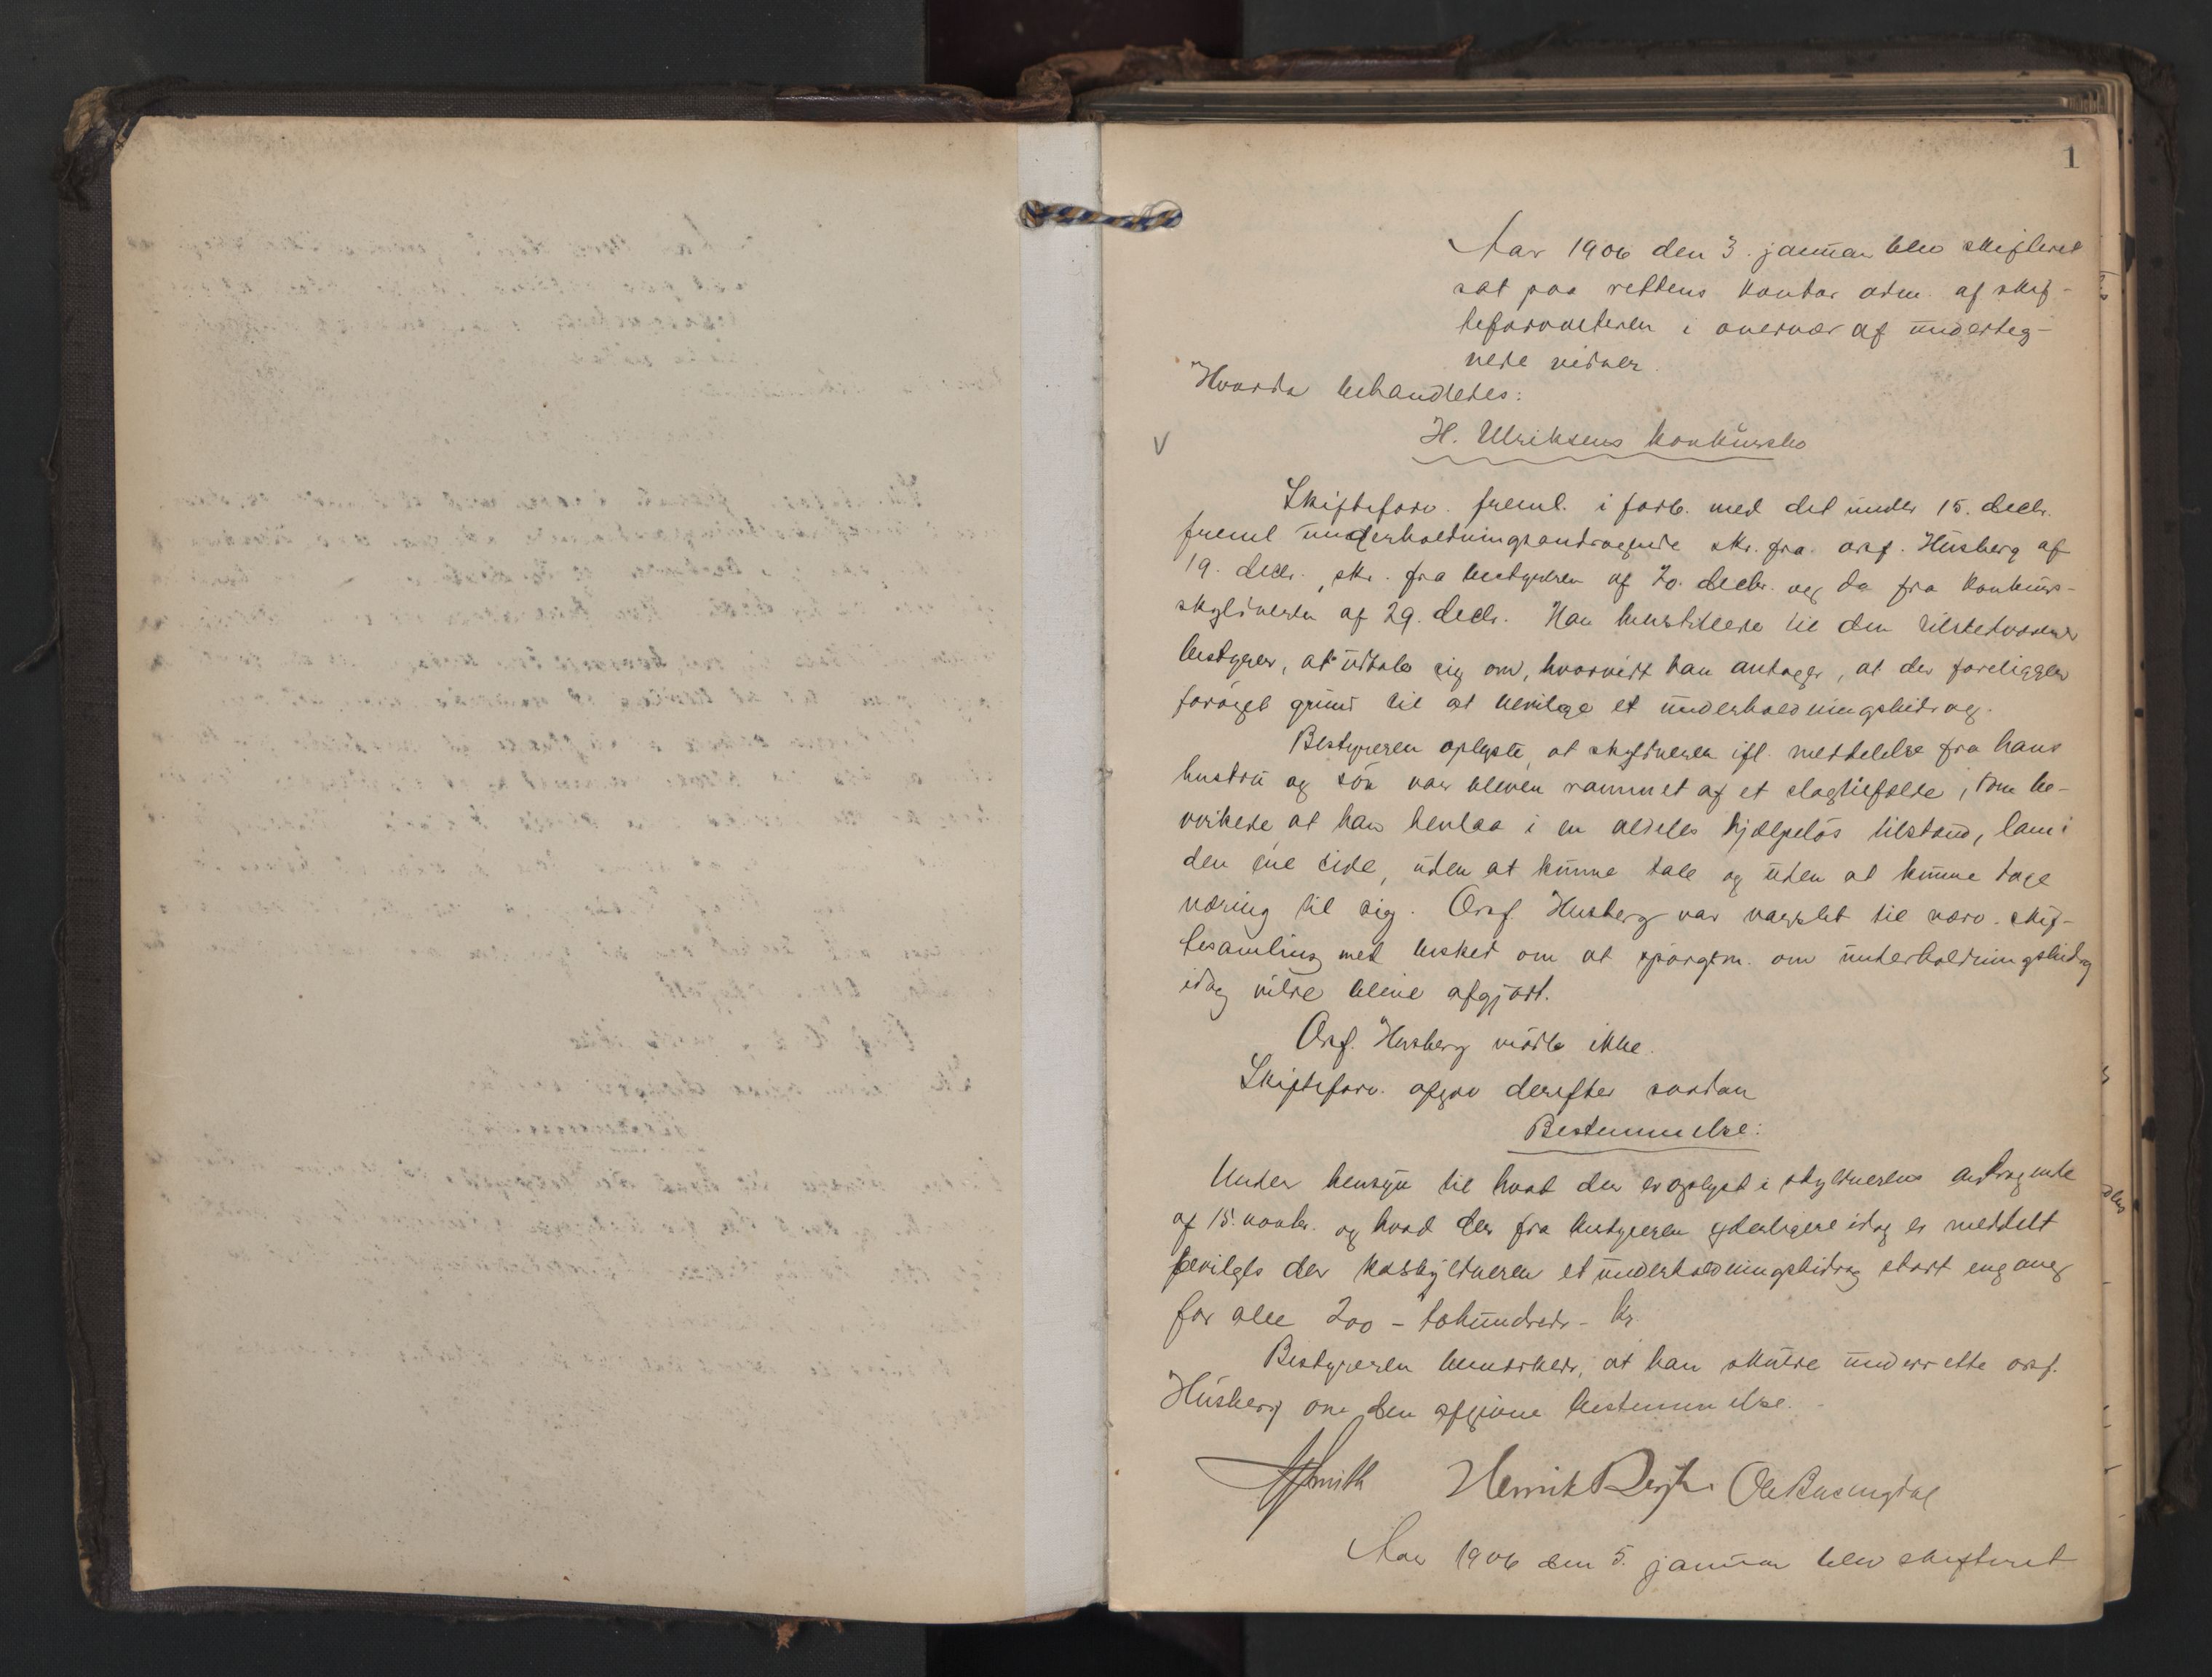 1
Aar 1906 den 3. januar blev skifteret
sat paa rettens kontor adm. af skif-
teforvalteren i overvær af underteg-
nede vidner.
Hvorda behandledes:
V
H. Ulriksens konkursbo
Skifteforv. freml. i forb. med det under 15. decbr.
freml underholdningsandragende skr. fra orsf. Husberg af
19. decbr., skr. fra bestyreren af 20. decbr. og do fra konkurs-
skyldneren af 29. decbr. Han henstillede til den tilstedværende
bestyrer, at udtale sig om, hvorvidt han antager, at der foreligger
forøget grund til at bevilge et underholdningsbidrag.
Bestyreren oplyste, at skyldneren ifl. meddelelse fra hans
hustru og søn var bleven rammet af et slagtilfælde, som be-
virkede, at han henlaa i en aldeles hjælpeløs tilstand, lam i
den ene side, uden at kunne tale og uden at kunne tage
næring til sig. Orsf. Husberg var varslet til nærv. skif-
tesamling med besked om at spørgsm. om underholdningsbidrag
idag vilde blive afgjort.
Orsf. Husberg mødte ikke.
Skifteforv. afgav derefter saadan
Bestemmelse:
Under hensyn til hvad der er oplyst i skyldnerens andragende
af 15. novbr. og hvad der fra bestyreren yderligere idag er meddelt
bevilges der koskyldneren et underholdningsbidrag stort engang
for alle 200 - tohundrede - kr.
Bestyreren bemærkede, at han skulde underrette orsf.
Husberg om den afgivne bestemmelse.
Smith Henrik Bergh. Ole
Aar 1906 den 5. januar blev skifteret